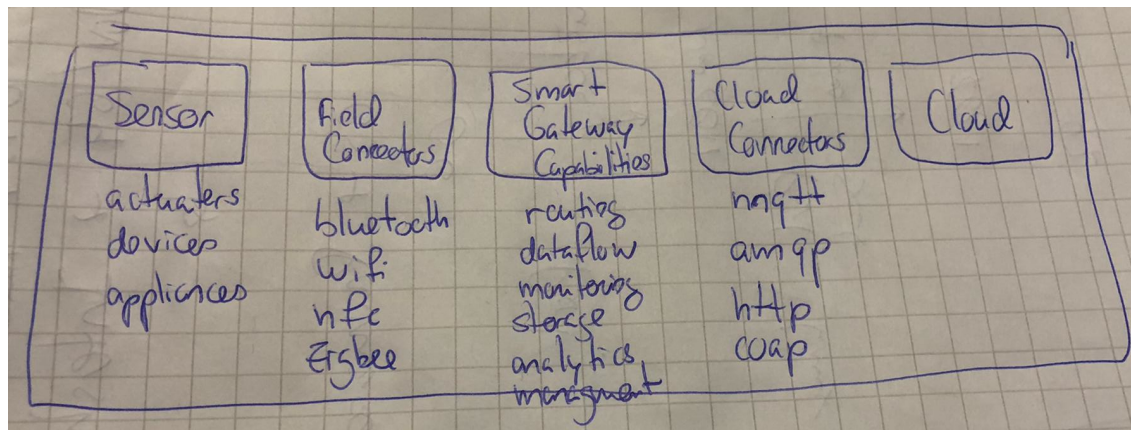 Sensor
actuaters
devices
appliances
Field
Connectors
bluetooth
wifi
nfc
Zigbee
Smart
Gateway
Capabilities
routing
dataflow
monitoring
storage
analytics
managment
Cload
Connectors
mqtt
amqp
http
coap
Cloud